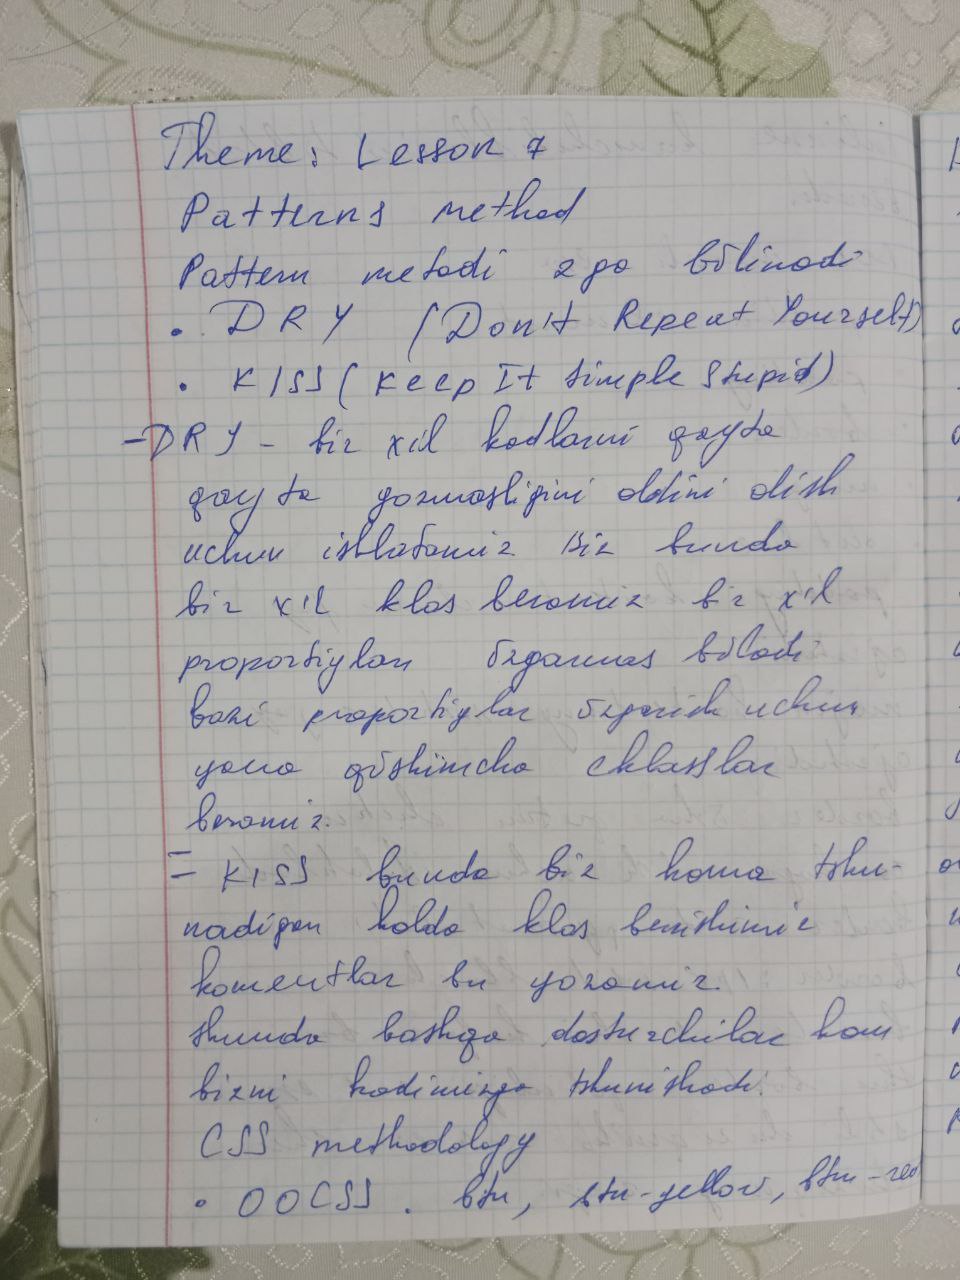 Theme: Lesson 7
Patterns method
Pattern metodi 2 ga bo'linadi
• DRY (Don't Repeat Yourself)
• KISS (Keep It Simple Stupid)
- DRY - bir xil kodlarni qayta
qayta yozmasligini oldini olish
uchun ishlatamiz Biz bunda
bir xil klas beramiz bir xil
proportiylar özgarmas böladi
bazi proportiylar özgarish uchun
yana qöshimcha cklasslar
beramiz.
= KISS bunda biz hama tshu-
nadigan holda klas berishimiz
komentlar bn yozamiz.
shunda bashqa dasturchilar ham
bizni kodimizga tshunishadi.
CSS methodology
• OOCSS . btn, btn-yellow, btn-red